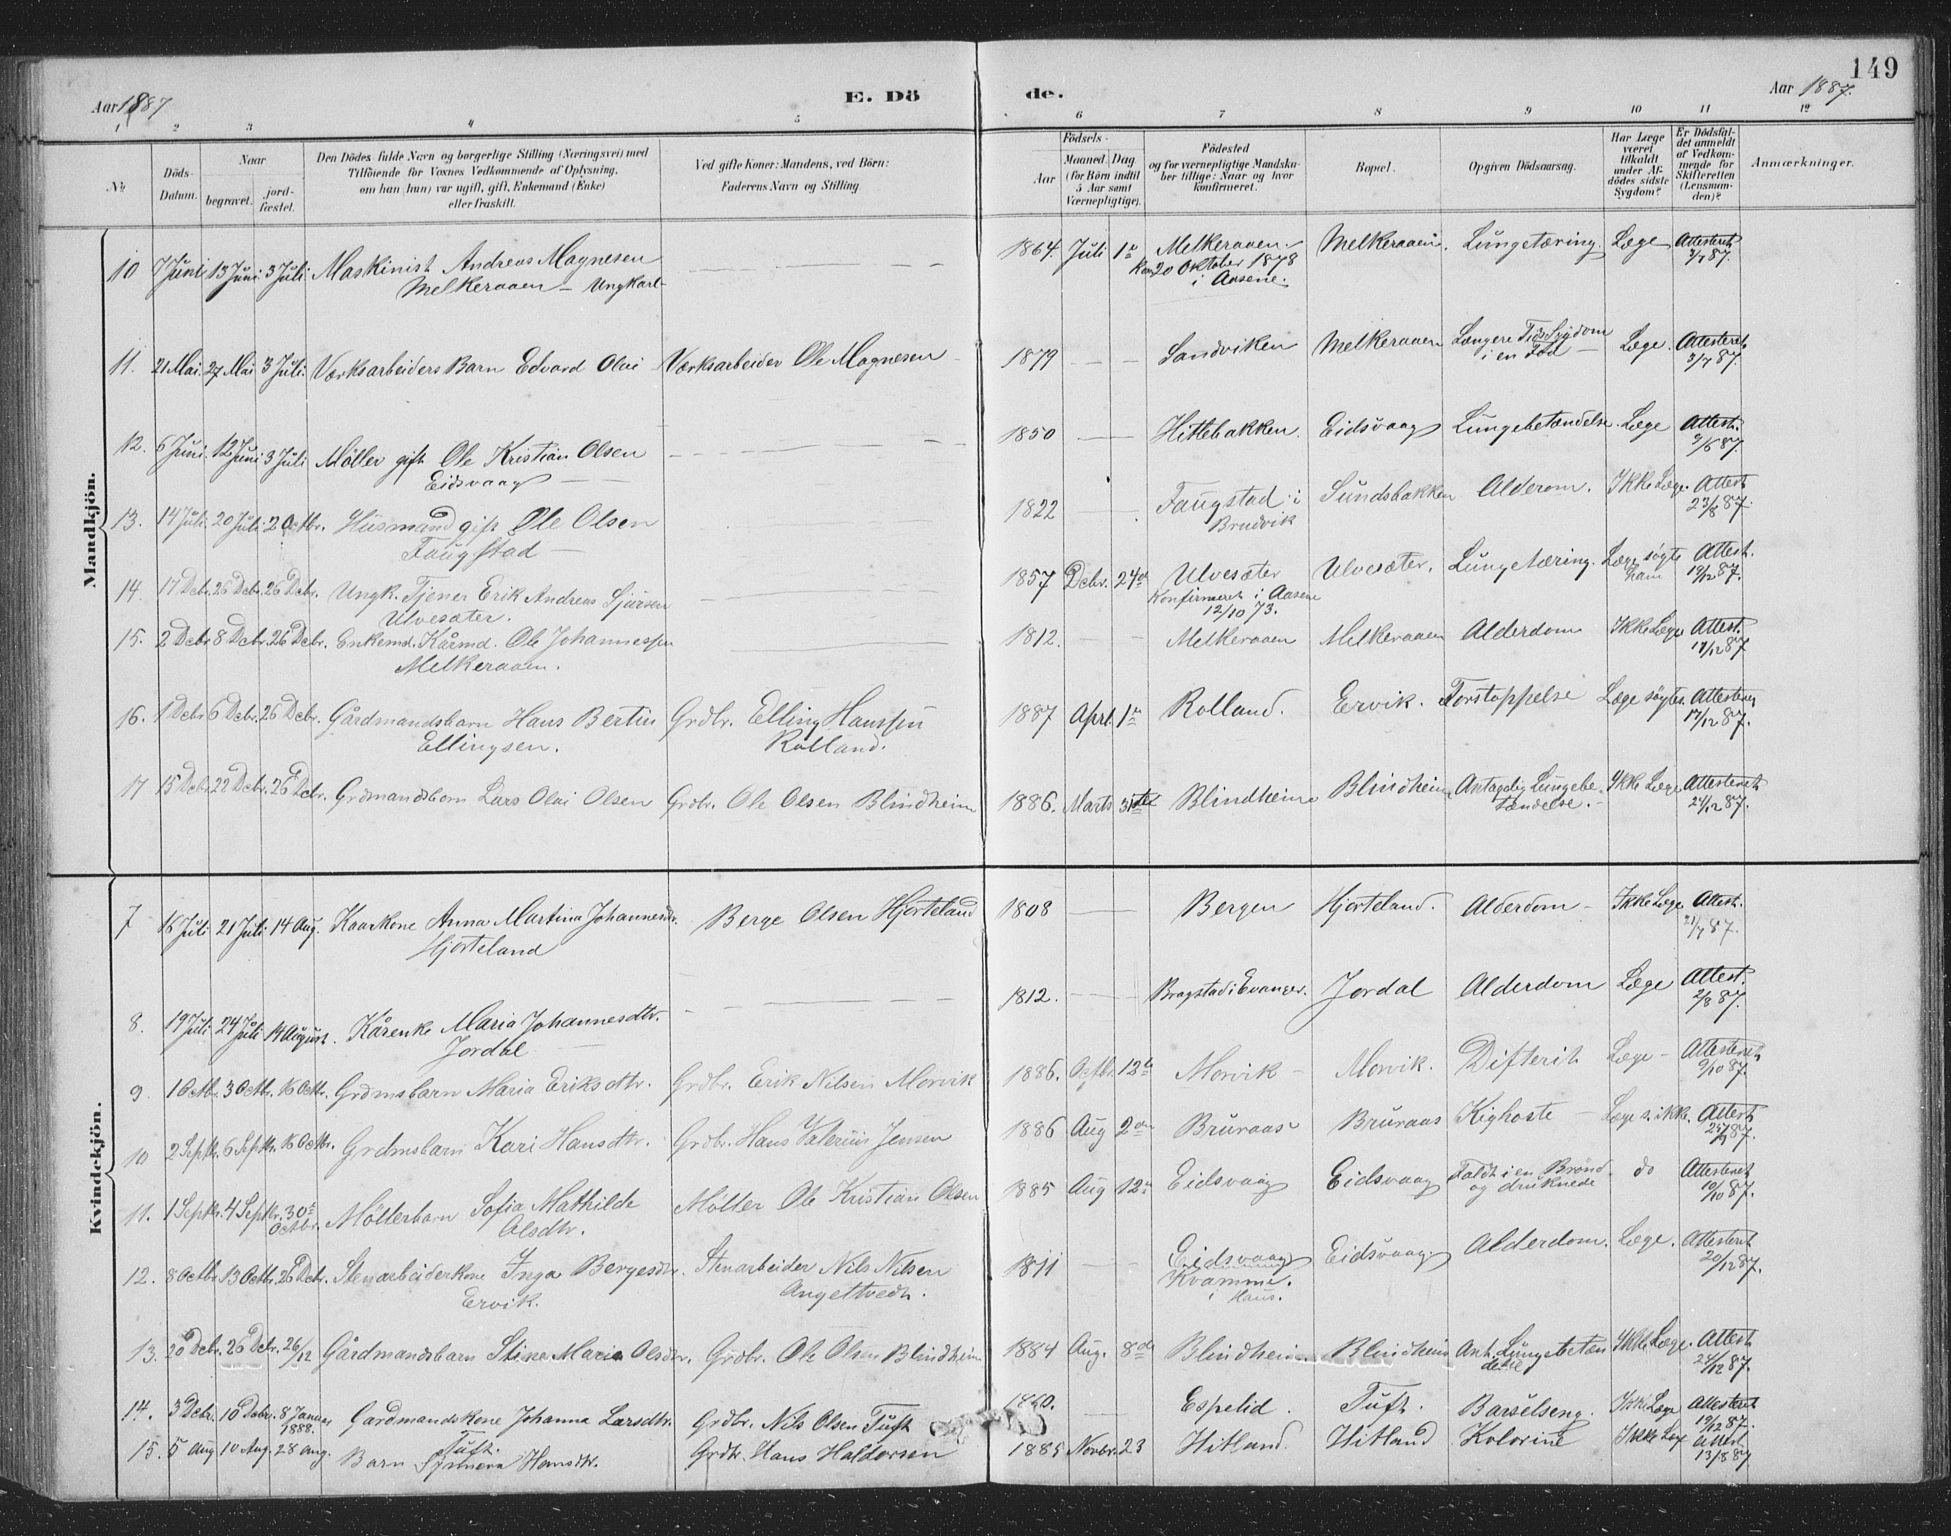 149
Aar 1887 E. Döde. Aar 1887.
1 2 3 4 5 6 7 8 9 10 11 12
No
Döds-Datum.
Naar begravet. jordfæstet.
Den Dödes fulde Navn og borgerlige Stilling (Næringsvei) med Tilföiende for Voxnes Vedkommende af Oplysning, om han (hun) var ugift, gift, Enkemand (Enke) eller fraskilt.
Ved gifte Koner: Mandens, ved Börn: Faderens Navn og Stilling
Födsels- Aar Maaned Dag (for Börn indtil 5 Aar samt Værnepligtige).
Födested og for værnepligtige Mandskaber tillige: Naar og hvor konfirmeret.
Bopæl.
Opgiven Dödsaarsag.
Har Læge været tilkaldt under Afdödes sidste Sygdom?
Er Dödsfaldet anmeldt af Vedkommende for Skifteretten (Lensmanden)?
Anmærkninger.
Mandkjön.
10 7 Juni 13 Juni 3 Juli Maskinist Andreas Magnesen Melkeraaen - Ungkarl - 1864. Juli 1 Melkeraaen. Konf. 20 Oktober 1878 i Aasene. Melkeraaen. Lungetæring. Læge Attesteret 3/7 87.
11. 21 Mai 27 Mai 3 Juli. Værksarbeiders Barn Edvard Olai Værksarbeider Ole Magnesen 1879 Sandviken Melkeraaen Længere Tids Sygdom i en Fod Læge. Attesteret 3/7 87.
12. 6 Juni 12 Juni 3 Juli Möller gift Ole Kristian Olsen Eidsvaag 1850 Hittebakken. Eidsvaag Lungebetændelse. Læge Attest. 9/6 87.
13. 14 Juli 20 Juli 2 Octbr. Husmand gift Ole Olsen Faugstad 1822 Faugstad i Bruvik Sundsbakken Alderom. Ikke Læge. Attest 23/8 87.
14. 17 Debr. 26 Debr. 26 Debr. Ungk. Tjener Erik Andreas Sjursen Ulvesæter. 1857 Debr. 24 Ulvesæter Konfirmeret i Aasene 12/10 73. Ulvesæter. Lungetæring. Læge søgte ham Attest. 19/12 87.
15. 2 Debr 8 Debr. 26 Debr. Enkemd. Kårmd. Ole Johannessen Melkeraaen. 1812. Melkeraaen Melkeraaen Alderdom Ikke Læge Attest. 17/12 87
16. 1 Debr 6 Debr. 26 Debr. Gårdmandsbarn Hans Bertin Ellingsen. Grdbr. Elling Hanssen Rolland. 1887 Aprl. 1 Rolland. Ervik. Forstoppelse Læge søgtes. Attesteret 17/12 87.
17 15 Debr. 22 Debr. 26 Debr. Grdmandsbarn Lars Olai Olsen Grdbr. Ole Olsen Blindheim 1886. Marts 31te Blindheim Blindheim Antagelig Lungebetændelse. Ikke Læge Attesteret 24/12 87.
Kvindekjön.
7 16 Juli 21 Juli 14 Aug. Kaarkone Anna Martina Johannesdtr. Hjorteland Berge Olsen Hjorteland 1808 Bergen Hjorteland. Alderdom - Ikke Læge Attest. 21/7 87.
8. 19 Juli 24 Juli 14 August. Kårenke Maria Johannesdtr. Jordal 1812. Bragstad i Evanger. Jordal Alderdom Læge Attest. 2/8 87.
9. 1 Octbr. 3 Octbr. 16 Octbr. Grdmsbarn Maria Eriksdtr. Grdbr. Erik Nilsen Morvik 1886. Octbr. 12 Morvik Morvik. Difterit Læge - Attesteret 9/10 87.
10 2 Septbr. 6 Septbr. 16 Octbr. Grdmsbarn Kari Hansdtr. Grdbr. Hans Valerius Jensen 1886 Aug 2 Bruraas Bruraas Kighoste Læge s. ikke. Attest 87.
11. 1 Septbr. 4 Septbr. 30 Octbr. Möllerbarn Sofia Mathilde Olsdtr. Möller Ole Kristian Olsen 1885 Aug 12 Eidsvaag Eidsvaag Faldt i en Brönd og druknede do Attesteret 19/10 87.
12. 8 Octbr 13 Octbr. 26 Debr. Stenarbeiderkone Inga Bergesdtr. Ervik. Stenarbeider Nils Nilsen Angeltvedt. 1811 Eidsvaag Kvamme. i Haus. Eidsvaag. Alderdom. Læge. Attesteret 20/12 87.
13. 20 Debr. 26 Debr. 26/12 Gårdmandsbarn Stine Maria Olsdtr. Grdbr. Ole Olsen Blindheim 1884 Aug. 8de Blindheim Blindheim Ant. Lungebetændelse Ikke Læge. Attest 24/12 87.
14. 3 Debr. 10 Debr. 8 Januar 1888. Gardmandskone Johanna Larsdtr. Tuft. Grdbr. Nils Olsen Tuft 1860. Espelid. Tuft. Barselseng. Ikke Læge Attesteret 19/12 87.
15. 5 Aug 10 Aug. 28 Aug. Barn Synneva Hansdtr. Grdbr. Hans Haldorsen 1885 Novbr. 23 Hitland. Hitland Kolorine Ikke Læge Attest 13/8 87